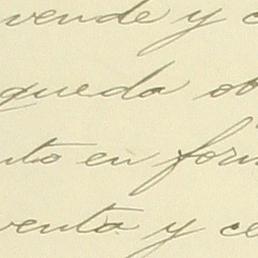 vende y c
queda ob
nto en for
venta y ce